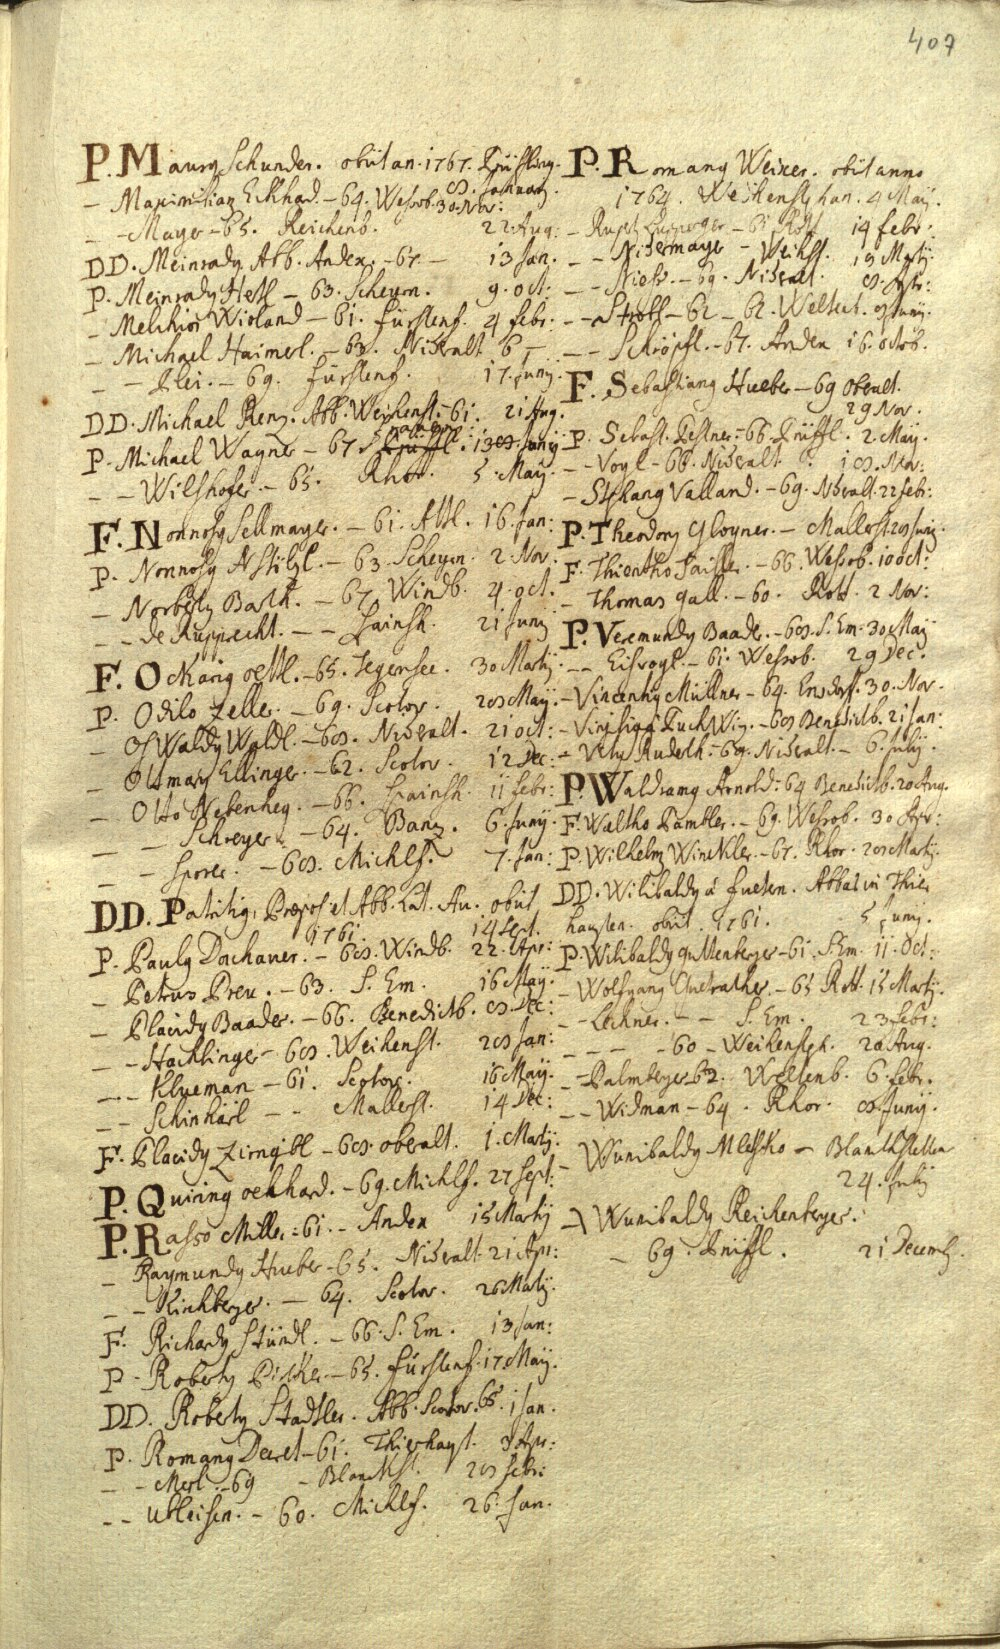 407
P. Maurq Schunder. obiit an. 1767. Prüfling.
8. January.
– Maximilian Eckhard. – 64. Wessob. 30. Nov:
– – Mayer – 65. Reichenb. 22. Aug:
DD. Meinradq Abb. Andex. – 67 – 13 Jan.
P. Meinradq Hell – 63. Scheurn. 9. oct:
– Melchior Wioland – 61. fürstenf. 4 febr:
– Michael Haimerl. – 63. Nideralt 6 –
– – – 69. fürstenf. 17. Juny.
DD. Michael Renz. Abb. Weihenst. – 61. 21 Aug.
P. Michael Wagner – 67 Prüffl. 13 Junij
– – Wilshofer – 65. Rhot. 5. May.
F. Nonnosq Sellmayer. – 61. Attl. 16. Jan:
P. Nonnosq Hstilzl. – 63. Scheyrn. 2. Nov.
– Norbertq Barth. – 67. Windb. 4. oct.
– – de Rupprecht. – – Hainsh. 21 Junij
F. Ockang oettl. – 65. Tegernsee. 30 Martij.
P. Odilo Zeller. – 69. Scotor. 28 Maij.
– Oswaldq Waldl. – 68. Nideralt. 21 oct:
– Ottmarq Ellinger. – 62. Scotor. 12 Dec:
– Otto Nebenheg. – 66. Hainsh. 11 febr:
– – Schreyer. – 64. Banz. 6. Juny.
– – Sporer. – 68. Michlf. 7. Jan:
DD. Patritiq, Præpos. et Abb. Lat. Au. obiit
1761. 14 Sept.
P. Paulq Dachauer. – 68. Windb. 22. Apr:
– Petrus Preu. – 63. S. Em. 16 May.
– Placidq Baader. – 66. Benedictb. 8. Dec:
– – Hacklinger – 68. Weihenst. 28 Jan:
– – Klueman – 61. Scotor. 16 May.
– – Schinhärl – – Mallerst. 14 Dec:
F. Placidq Zirngibl – 68. oberalt. 1. Martij.
P. Quiring oekhard. – 69. Michlf. 27 Sept:
P. Rasso Miller: 61. – Andex 15 Martij
– Raymundq Hueber – 65. Nideralt. 21 Apr:
– – Kirchberger. – 64. Scotor. 26 Martij.
F. Richardq Stündl. – 66. S. Em. 13 Jan:
P. Robertq Pitcker – 65. fürstenf. 17 May.
DD. Robertq Stadler. Abb. Scotor. 65. 1 Jan.
P. Romanq Decret – 61. Thierhapt. 3 Apr:
– – Merl. – 69 – Blanckst. 28 febr:
– – Ubleisen. – 60. Michlf. 26. Jan.
P. Romanq Weixer. obiit anno
1764. Weihenstephan. 4 May.
– Rupert – 61 Rott 14 febr.
– – Nidermayer – Weihst. 19 Martij.
– – – 69. Nideralt.
– – Strobl – 62 – Weltenb. 9 Junij.
– – Schröpfl. – 67. Andex 16. octob.
F. Sebastianq Hueber – 69 oberalt.
29 Nov.
P. Sebast. Pestner – 66. Prüffl. 2. May.
– – Vogl – 66. Nideralt 18. Nov:
– Stephanq Valland. – 69. Nideralt. 22 febr:
P. Theodorq Gloyner. – Mallerst. 28 Junij.
F. Thientho Sailler. – 66. Wessob. 10 oct:
– Thomas Gall. – 60. Rott. 2 Nov:
P. Veremundq Baader. – 68. S. Em. 30 May
– – Eisvogl. – 61. Wessob. 29 Dec.
– Vincentiq Müllner – 64. Ensdorf. 30. Nov.
– – 68 Benedictb. 21 Jan:
– Vitq Auderth. – 69. Nideralt. – 6. July.
P. Waldramq Arnold: 64 Benedictb. 20 Aug.
F. Waltho Pambler. – 69. Wessob. 30 Apr:
P. Wilhelmq Winckler. – 67. Rhor. 28 Martij.
DD. Wilibaldq à fueten. Abbas in Thier
haupten. obiit. 1761. 5 Junij.
P. Wilibaldq Guttenberger – 61. S. Em. 11. Oct:
– Wolfgang – 65 Rott. 15 Martij.
– Lechner. – – S. Em. 23 febr:
– – – – 60 – Weihensteph. 28 Aug.
– – Palmberger 62. Weltenb. 6. febr.
– – Widman – 64. Rhor. 8. Junij.
– Wunibaldq Mletzko – Blanckstetten
24. July
– Wunibaldq Reichenberger.
– 69. Prüffl. 21 Decemb.